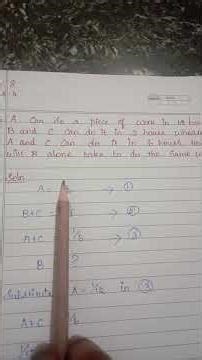 A Can do a piece of work in 12 hou
B and C can do it in 3 hours wherea
A and C can do it in 6 hours. ho
will B alone take to do the same w
Soln
A = → ①
B+C = → ②
A+C = 1/6 → ③
B = ?
Substitute A = 1/12 in ③
A+C = 1/6